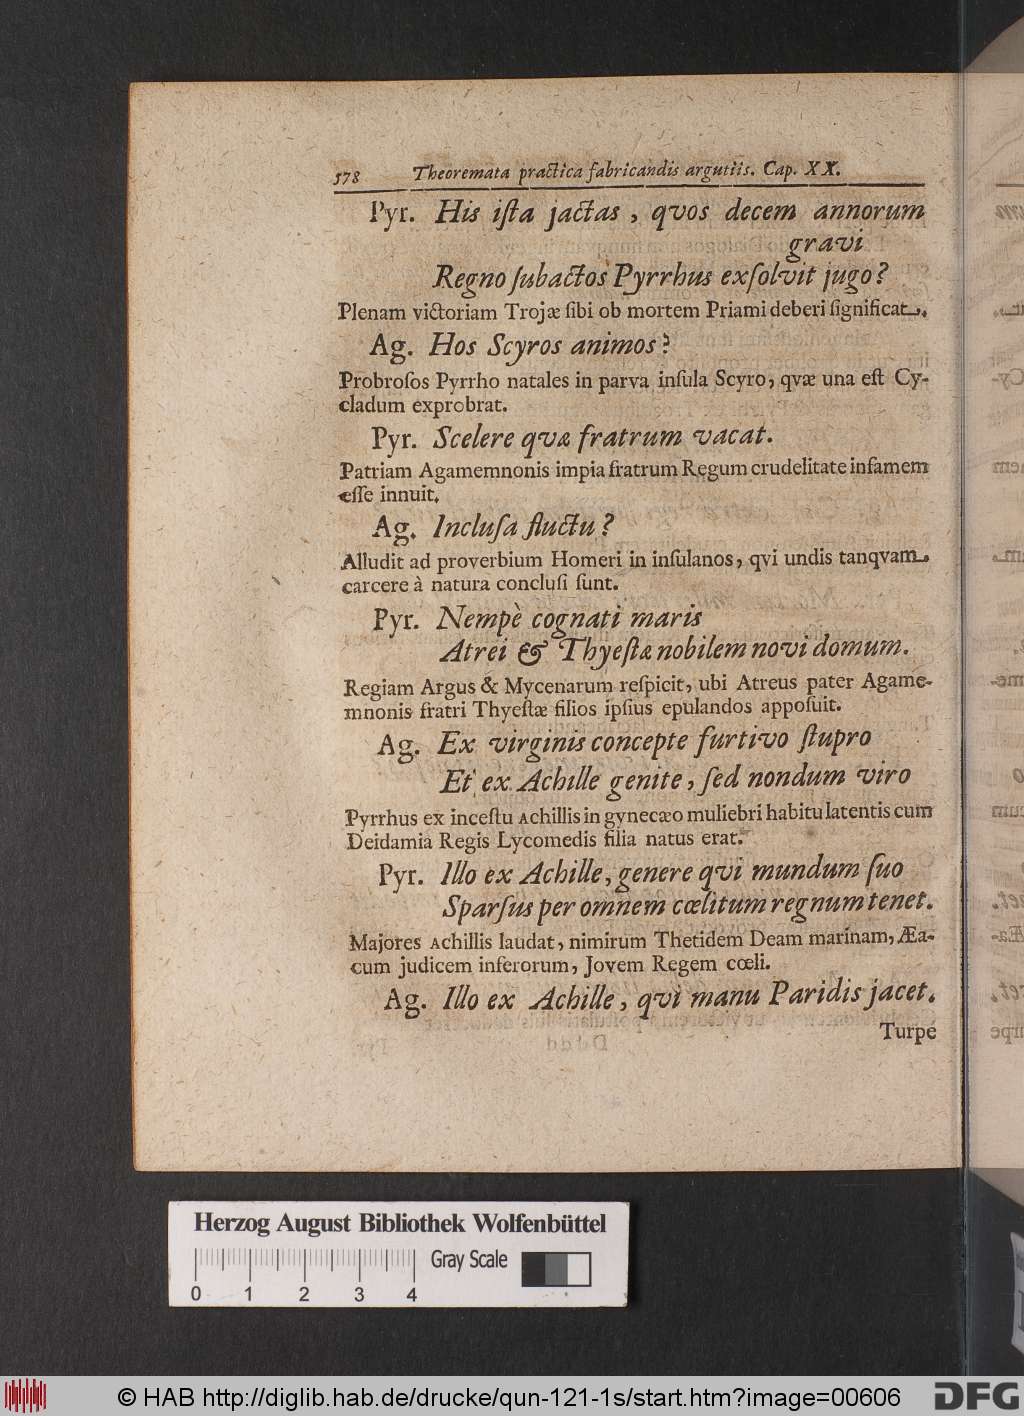 578 Theoremata practica fabricandis argutiis. Cap. XX.
Pyr. His iſta jactas, qvos decem annorum
gravi
Regno ſubactos Pyrrhus exſolvit jugo?
Plenam victoriam Trojæ ſibi ob mortem Priami deberi ſignificat.
Ag. Hos Scyros animos?
Probroſos Pyrrho natales in parva inſula Scyro, qvæ una eſt Cy-
cladum exprobrat.
Pyr. Scelere qvæ fratrum vacat.
Patriam Agamemnonis impia fratrum Regum crudelitate infamem
eſſe innuit.
Ag. Incluſa fluctu?
Alludit ad proverbium Homeri in inſulanos, qvi undis tanqvam
carcere à natura concluſi ſunt.
Pyr. Nempè cognati maris
Atrei & Thyeſtæ nobilem novi domum.
Regiam Argus & Mycenarum reſpicit, ubi Atreus pater Agame-
mnonis fratri Thyeſtæ filios ipſius epulandos appoſuit.
Ag. Ex virginis concepte furtivo ſtupro
Et ex Achille genite, ſed nondum viro
Pyrrhus ex inceſtu Achillis in gynecæo muliebri habitu latentis cum
Deidamia Regis Lycomedis filia natus erat.
Pyr. Illo ex Achille, genere qvi mundum ſuo
Sparſus per omnem cœlitum regnum tenet.
Majores Achillis laudat, nimirum Thetidem Deam marinam, Æa-
cum judicem inferorum, Jovem Regem cœli.
Ag. Illo ex Achille, qvi manu Paridis jacet.
Turpe
Herzog August Bibliothek Wolfenbüttel
Gray Scale
0 1 2 3 4
© HAB http://diglib.hab.de/drucke/qun-121-1s/start.htm?image=00606
DFG